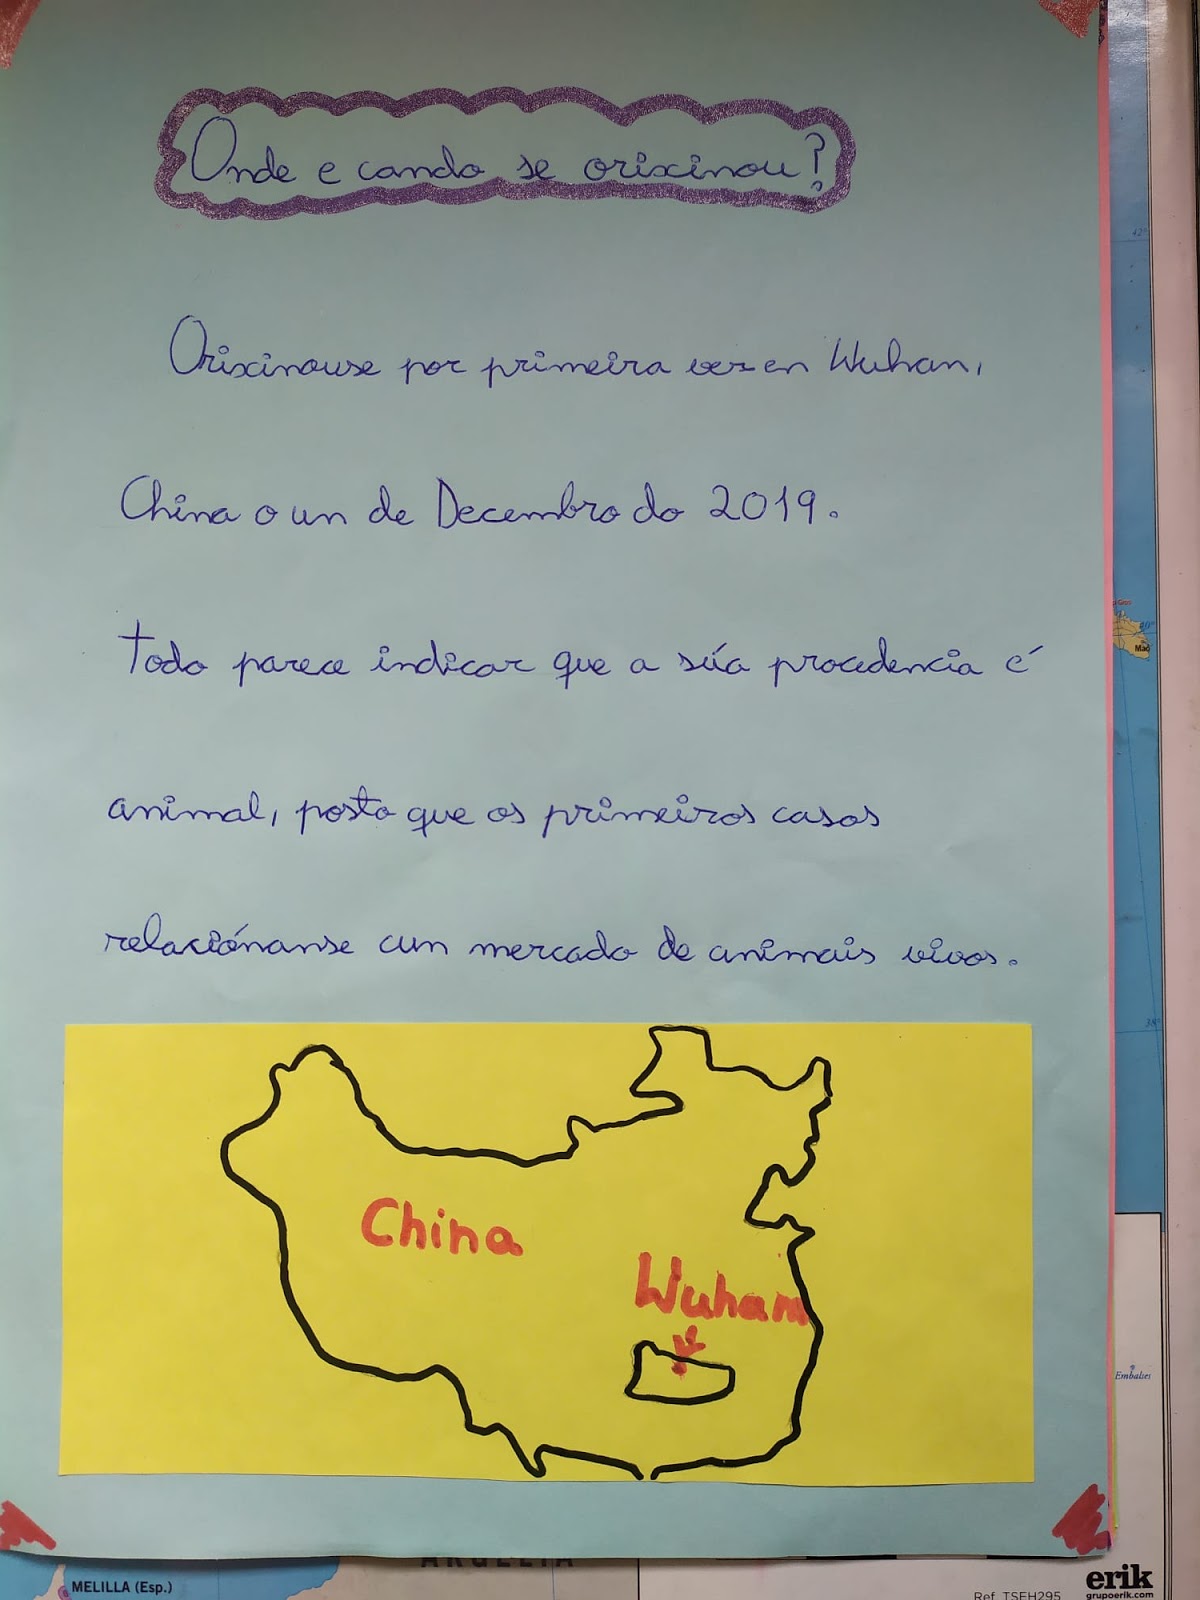 Onde e cando se orixinou?
Orixinouse por primeira vez en Wuhan,
China o un de Decembro do 2019.
Todo parece indicar que a súa procedencia é
animal, posto que os primeiros casos
relaciónanse cun mercado de animais vivos.
China
Wuham
42°
40°
Mad
38°
Embalses
ARGELIA
MELILLA (Esp.)
Ref. TSEH295
erik
grupoerik.com